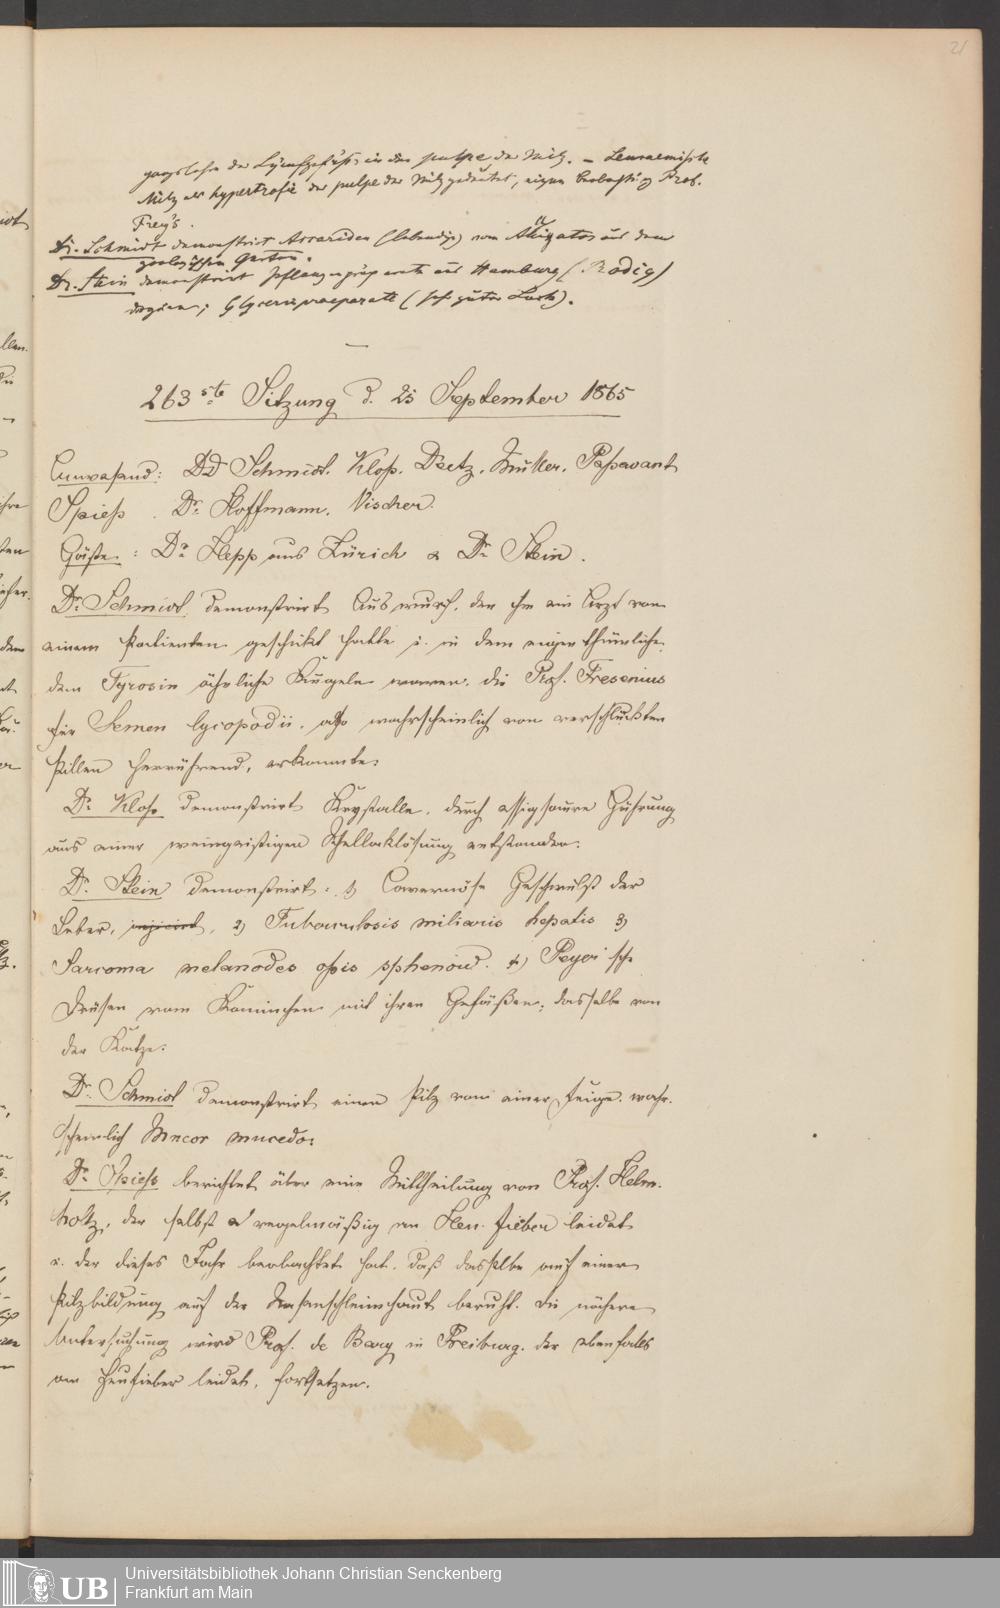 21
der Lymfgefäße in der pulpe der Milz. – Leucaemische
Milz als hypertrofie der pulpe der Milz gedeutet, eigene Prof.
Frey's.
Dr. Schmidt demonstrirt Ascariden (lebendige) vom Alligator aus dem
zoologischen Garten.
Dr. Stein demonstrirt aus Hamburg (Rodig)
Glycerinpraeparate (sehr guter Lack).
263ste Sitzung d. 25 September 1865
Anwesend: DD Schmidt. Kloß. Deetz. Müller. Passavant
Spieß. Dr. Hoffmann. Vischer.
Gäste: Dr Hepp aus Zürich & Dr Stein.
Dr. Schmidt demonstrirt Auswurf, den ihm ein Arzt von
einem Patienten geschickt hatte u. in dem eigenthümliche
dem Tyrosin ähnliche Kugeln waren, die Prof. Fresenius
für Semen lycopodii, also wahrscheinlich von verschluckten
Pillen herrührend, erkannte.
Dr. Kloß demonstrirt Krystalle, durch essigsaure Gährung
aus einer weingeistigen Schellacklösung entstanden.
Dr. Stein demonstrirt: 1) Cavernöse Geschwulst der
Leber, injicirt, 2) Tuberculosis miliaris hepatis 3)
Sarcoma melanodes ossis sphenoid. 4) Peyer'sche
Drüsen vom Kaninchen mit ihren Gefäßen; dasselbe von
der Katze.
Dr. Schmidt demonstrirt einen Pilz von einer Feige, wahr-
scheinlich Mucor mucedo.
Dr. Spieß berichtet über eine Mittheilung von Prof. Helm-
holtz, der selbst regelmäßig an Heu-Fieber leidet
u. der dieses Jahr beobachtet hat, daß dasselbe auf einer
Pilzbildung auf der Nasenschleimhaut beruht. Die nähere
Untersuchung wird Prof. de Bary in Freiburg, der ebenfalls
am Heufieber leidet, fortsetzen.
UB
Universitätsbibliothek Johann Christian Senckenberg
Frankfurt am Main